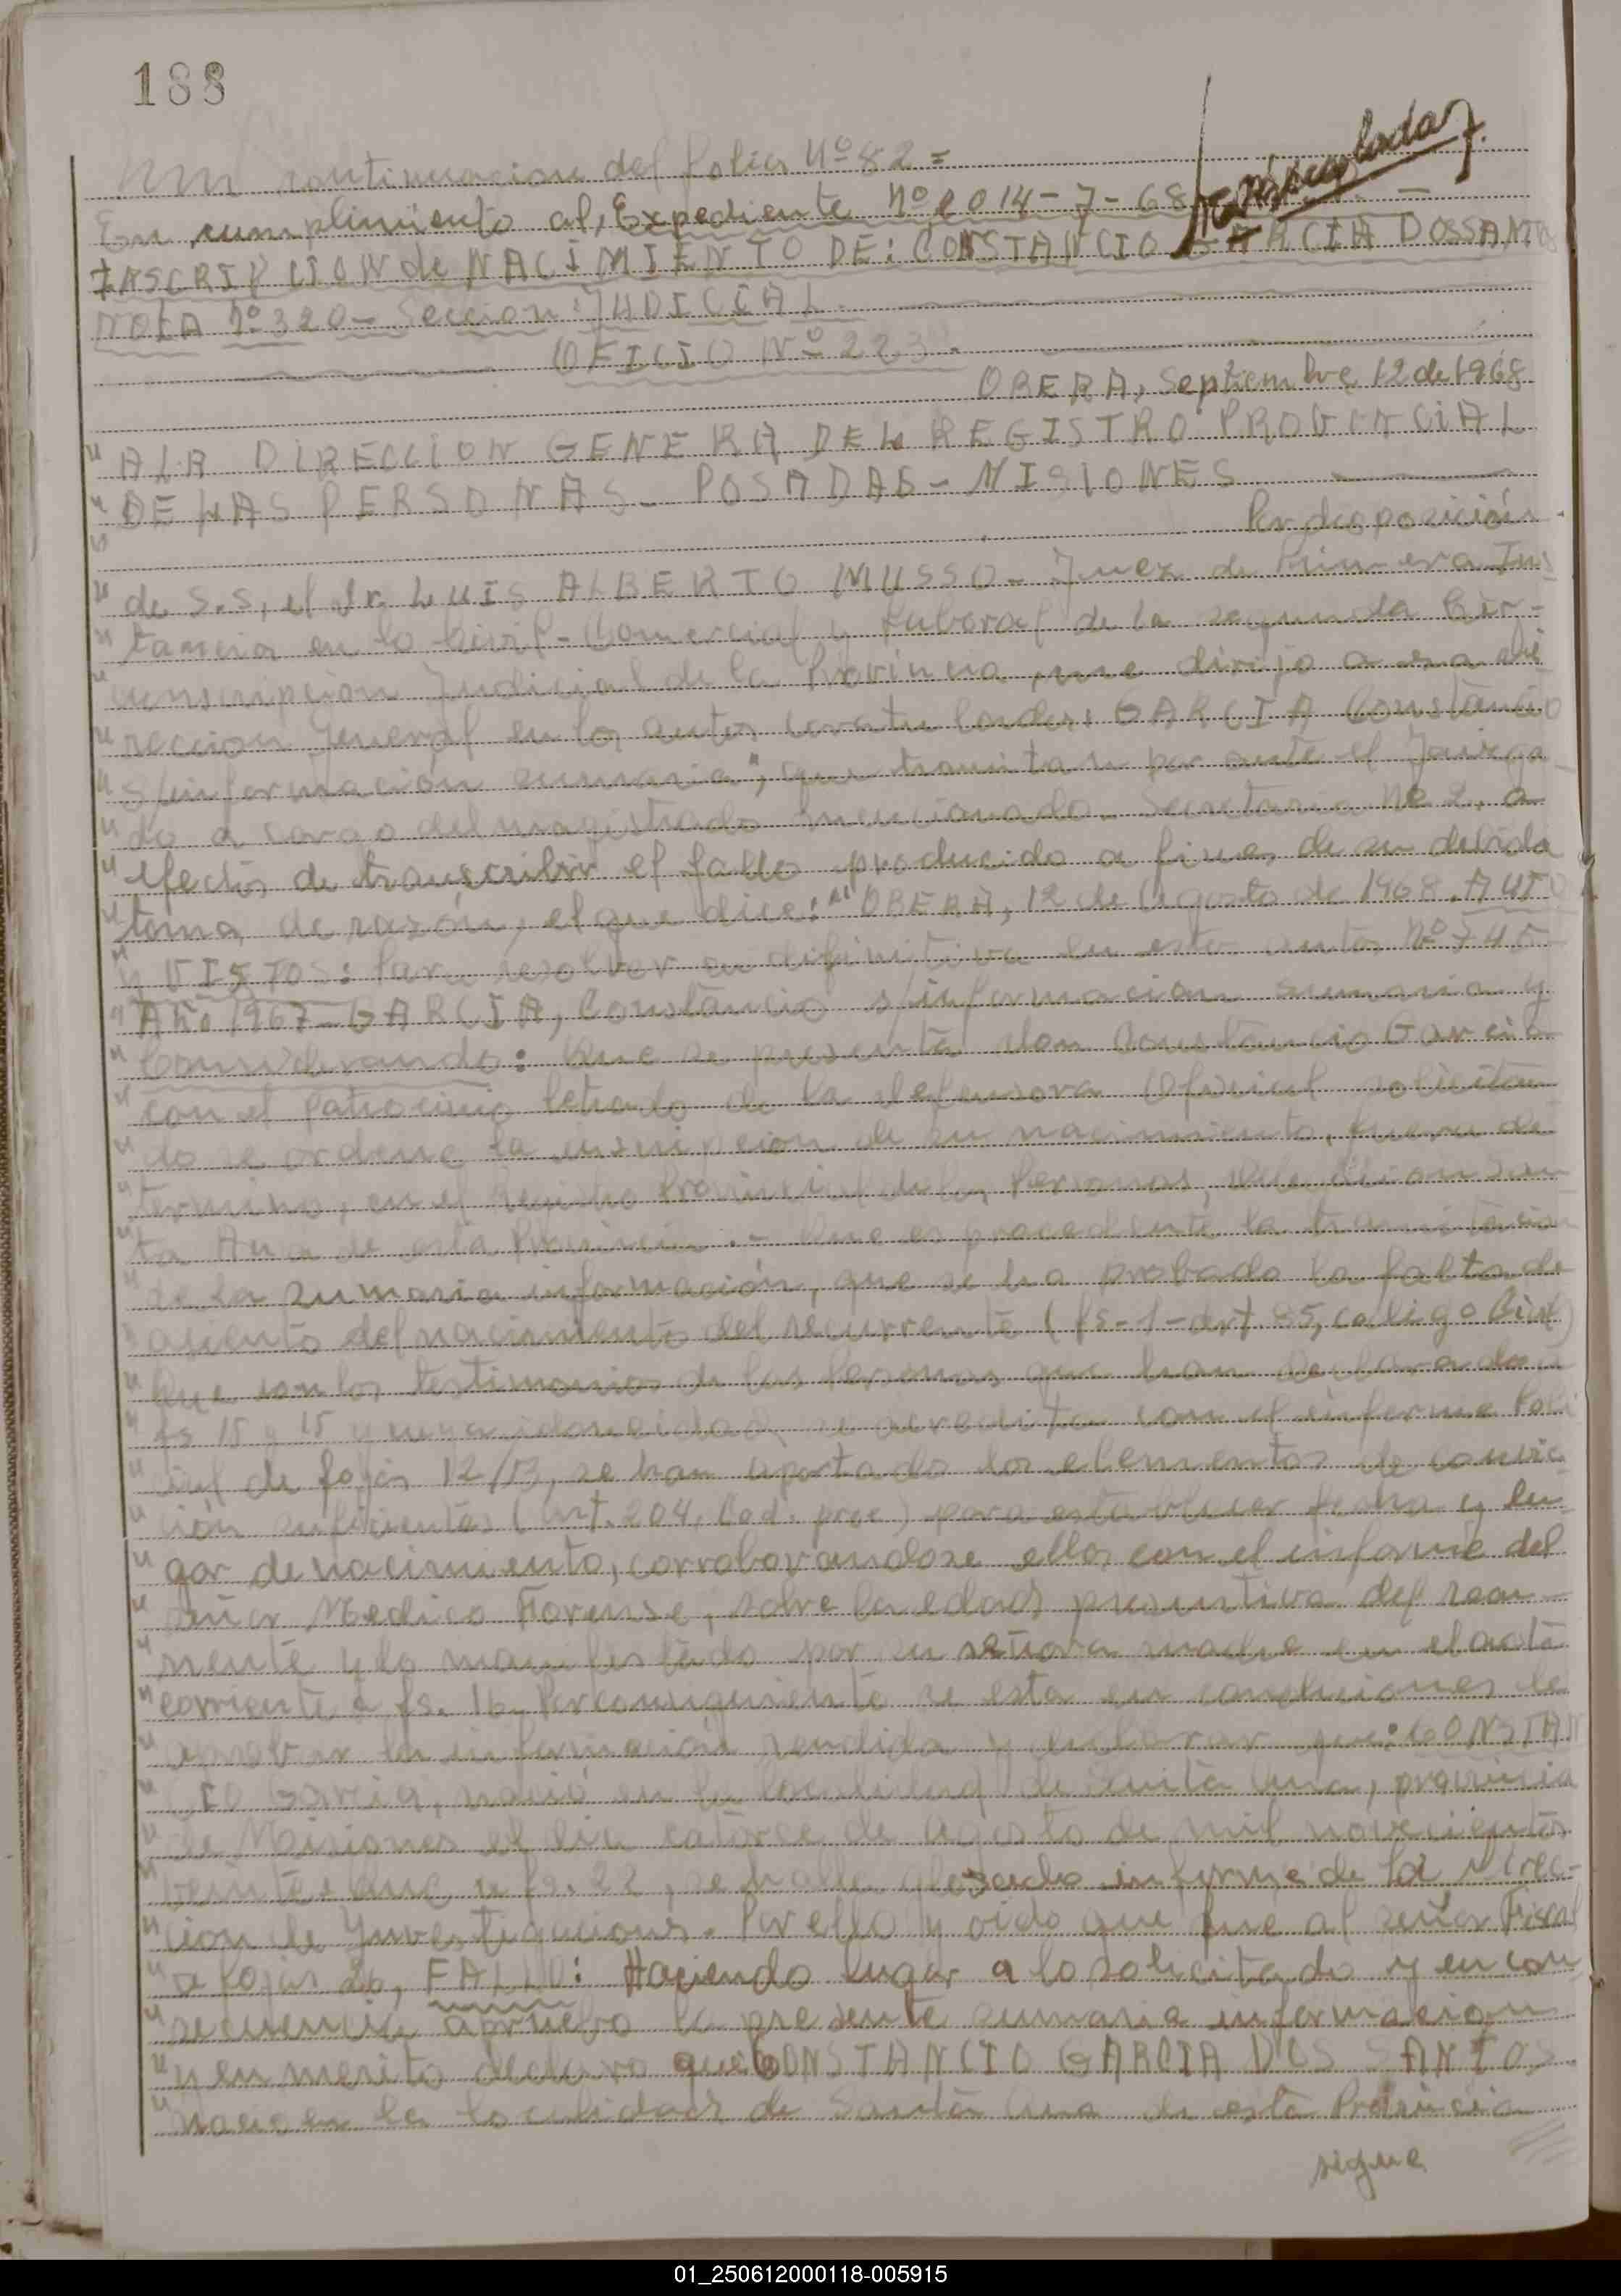 188
continuacion del folio Nº 82 =
En cumplimiento al, Expediente Nº 2014-7-68
INSCRIPCION de NACIMIENTO DE: CONSTANCIO GARCIA DOSSANTOS
NOTA Nº 320 - Seccion: JUDICIAL.
OFICIO Nº 223.
OBERA, Septiembre 12 de 1968
" A LA DIRECCION GENERA DEL REGISTRO PROVINCIAL
" DE LAS PERSONAS - POSADAS - MISIONES
" Por disposición
" de S.S, el Dr. LUIS ALBERTO MUSSO - Juez de Primera Ins
" tancia en lo Civil - Comercial y Laboral de la segunda Cir-
" cunscripcion Judicial de la Provincia, me dirijo a esa di
" reccion General en los autos caratulados: GARCIA Constancio
" s/informacion sumaria", que tramitan por ante el Juzga
" do a cargo del magistrado mencionado - Secretaria Nº 2, a
" efectos de transcribir el fallo producido a fines de su debida
" toma de razón, el que dice: "" OBERA, 12 de Agosto de 1968. AUTO
" y VISTOS: Para resolver en difinitiva en esto autos Nº 745
" Año 1967 - GARCIA, Constancio s/informacion sumaria y
" Considerando: Que se presenta don Constancio Garcia
" con el Patrocinio letrado de la defensora Oficial solicitan
" do se ordene la inscripcion de su nacimiento, fuera de
" termino, en el Registro Provincial de las Personas, San
" ta Ana de esta Provincia. - Que es procedente la tramitacion
" de la sumaria informacion, que se ha probado la falta de
" asiento del nacimiento del recurrente (fs - 1 - art. 85, codigo Civil)
" Que con los testimonios de las Personas que han declarado a
" fs 15 y 15 y cuya idoneidad se acredita con el informe Poli
" cial de fojas 12/13, se han aportado los elementos de convic
" ción suficientes (Art. 204, Cod. proc) para establecer fecha y lu
" gar de nacimiento, corroborandose ellos con el informe del
" señor Medico Forense, sobre la edad presuntiva del recu-
" rrente y lo manifestado por su señora madre en el acta
" corriente a fs. 16. Por consiguiente se esta en condiciones de
" aprobar la informacion rendida y declarar que: CONSTAN
" CIO Garcia, nació en la localidad de Santa Ana, provincia
" de Misiones el dia catorce de agosto de mil novecientos
" Que a fs. 22, se halla informe de la Direc-
" cion de Investigaciones. Por ello y oido que fue al señor Fiscal
" a fojas 26, FALLO: Haciendo lugar a lo solicitado y en con
" secuencia apruebo la presente sumaria informacion
" y en merito declaro que CONSTANCIO GARCIA DOS SANTOS
" nacio en la localidad de Santa Ana de esta Provincia
sigue
01_250612000118-005915